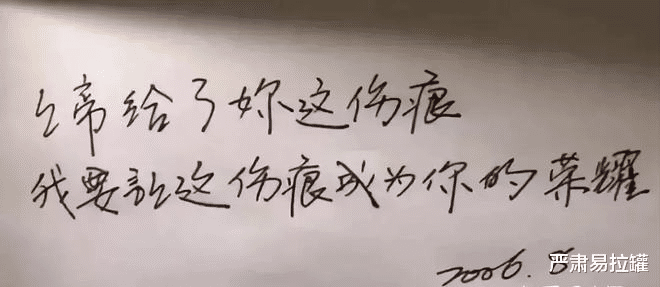 上帝给了妳这伤痕
我要让这伤痕成为你的荣耀
2006.8
严肃易拉罐